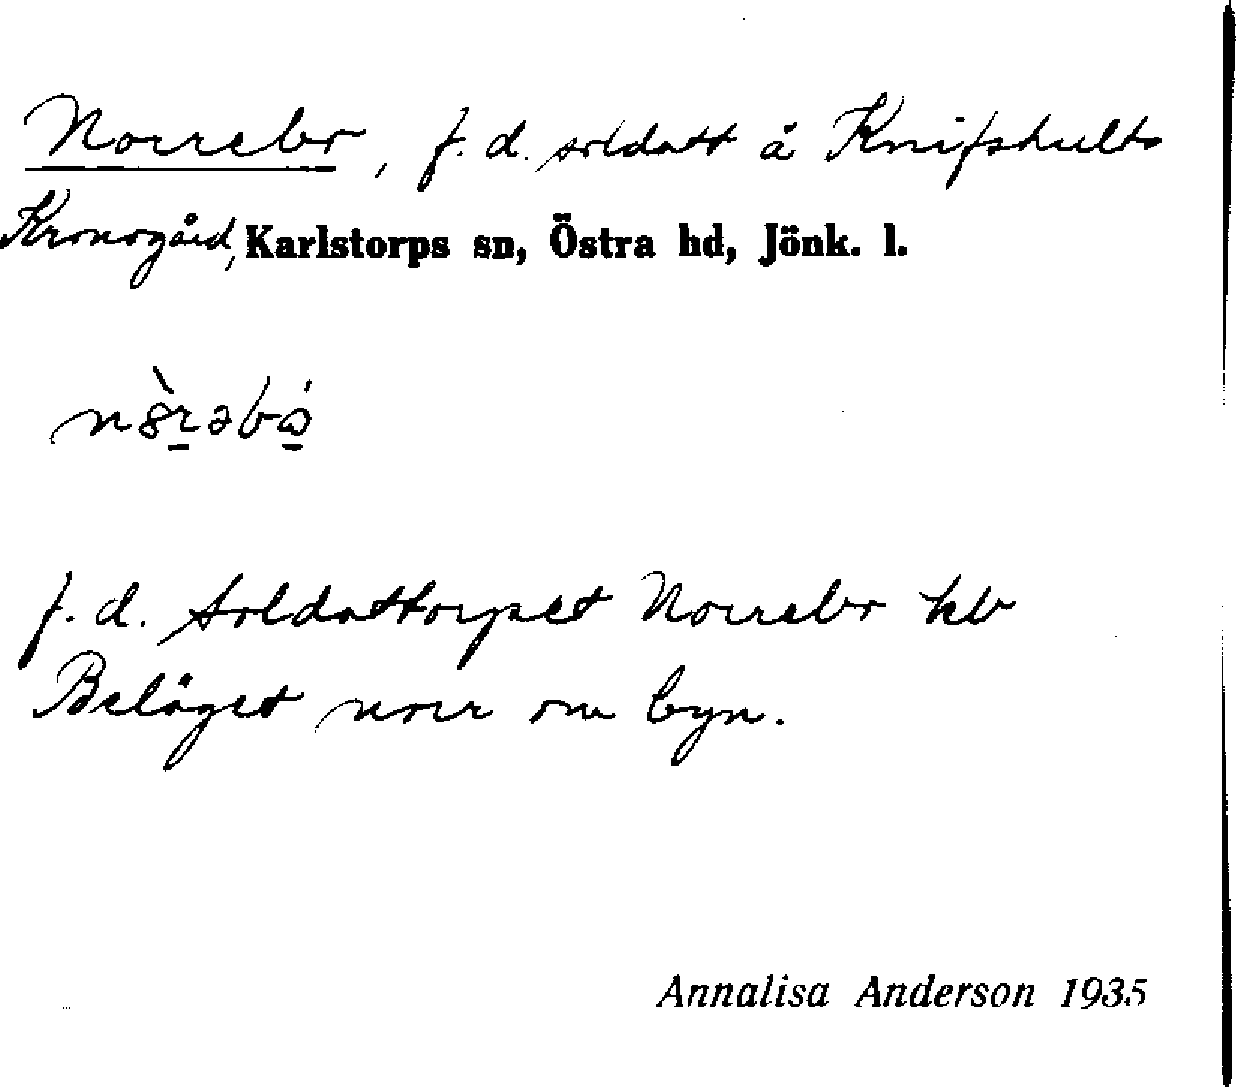 Norrebo, f. d. soldatt å Knifshults
Kronogård, Karlstorps sn, Östra hd, Jönk. l.
f. d. Soldattorpet Norrebo kb
Beläget norr om byn.
Annalisa Anderson 1935